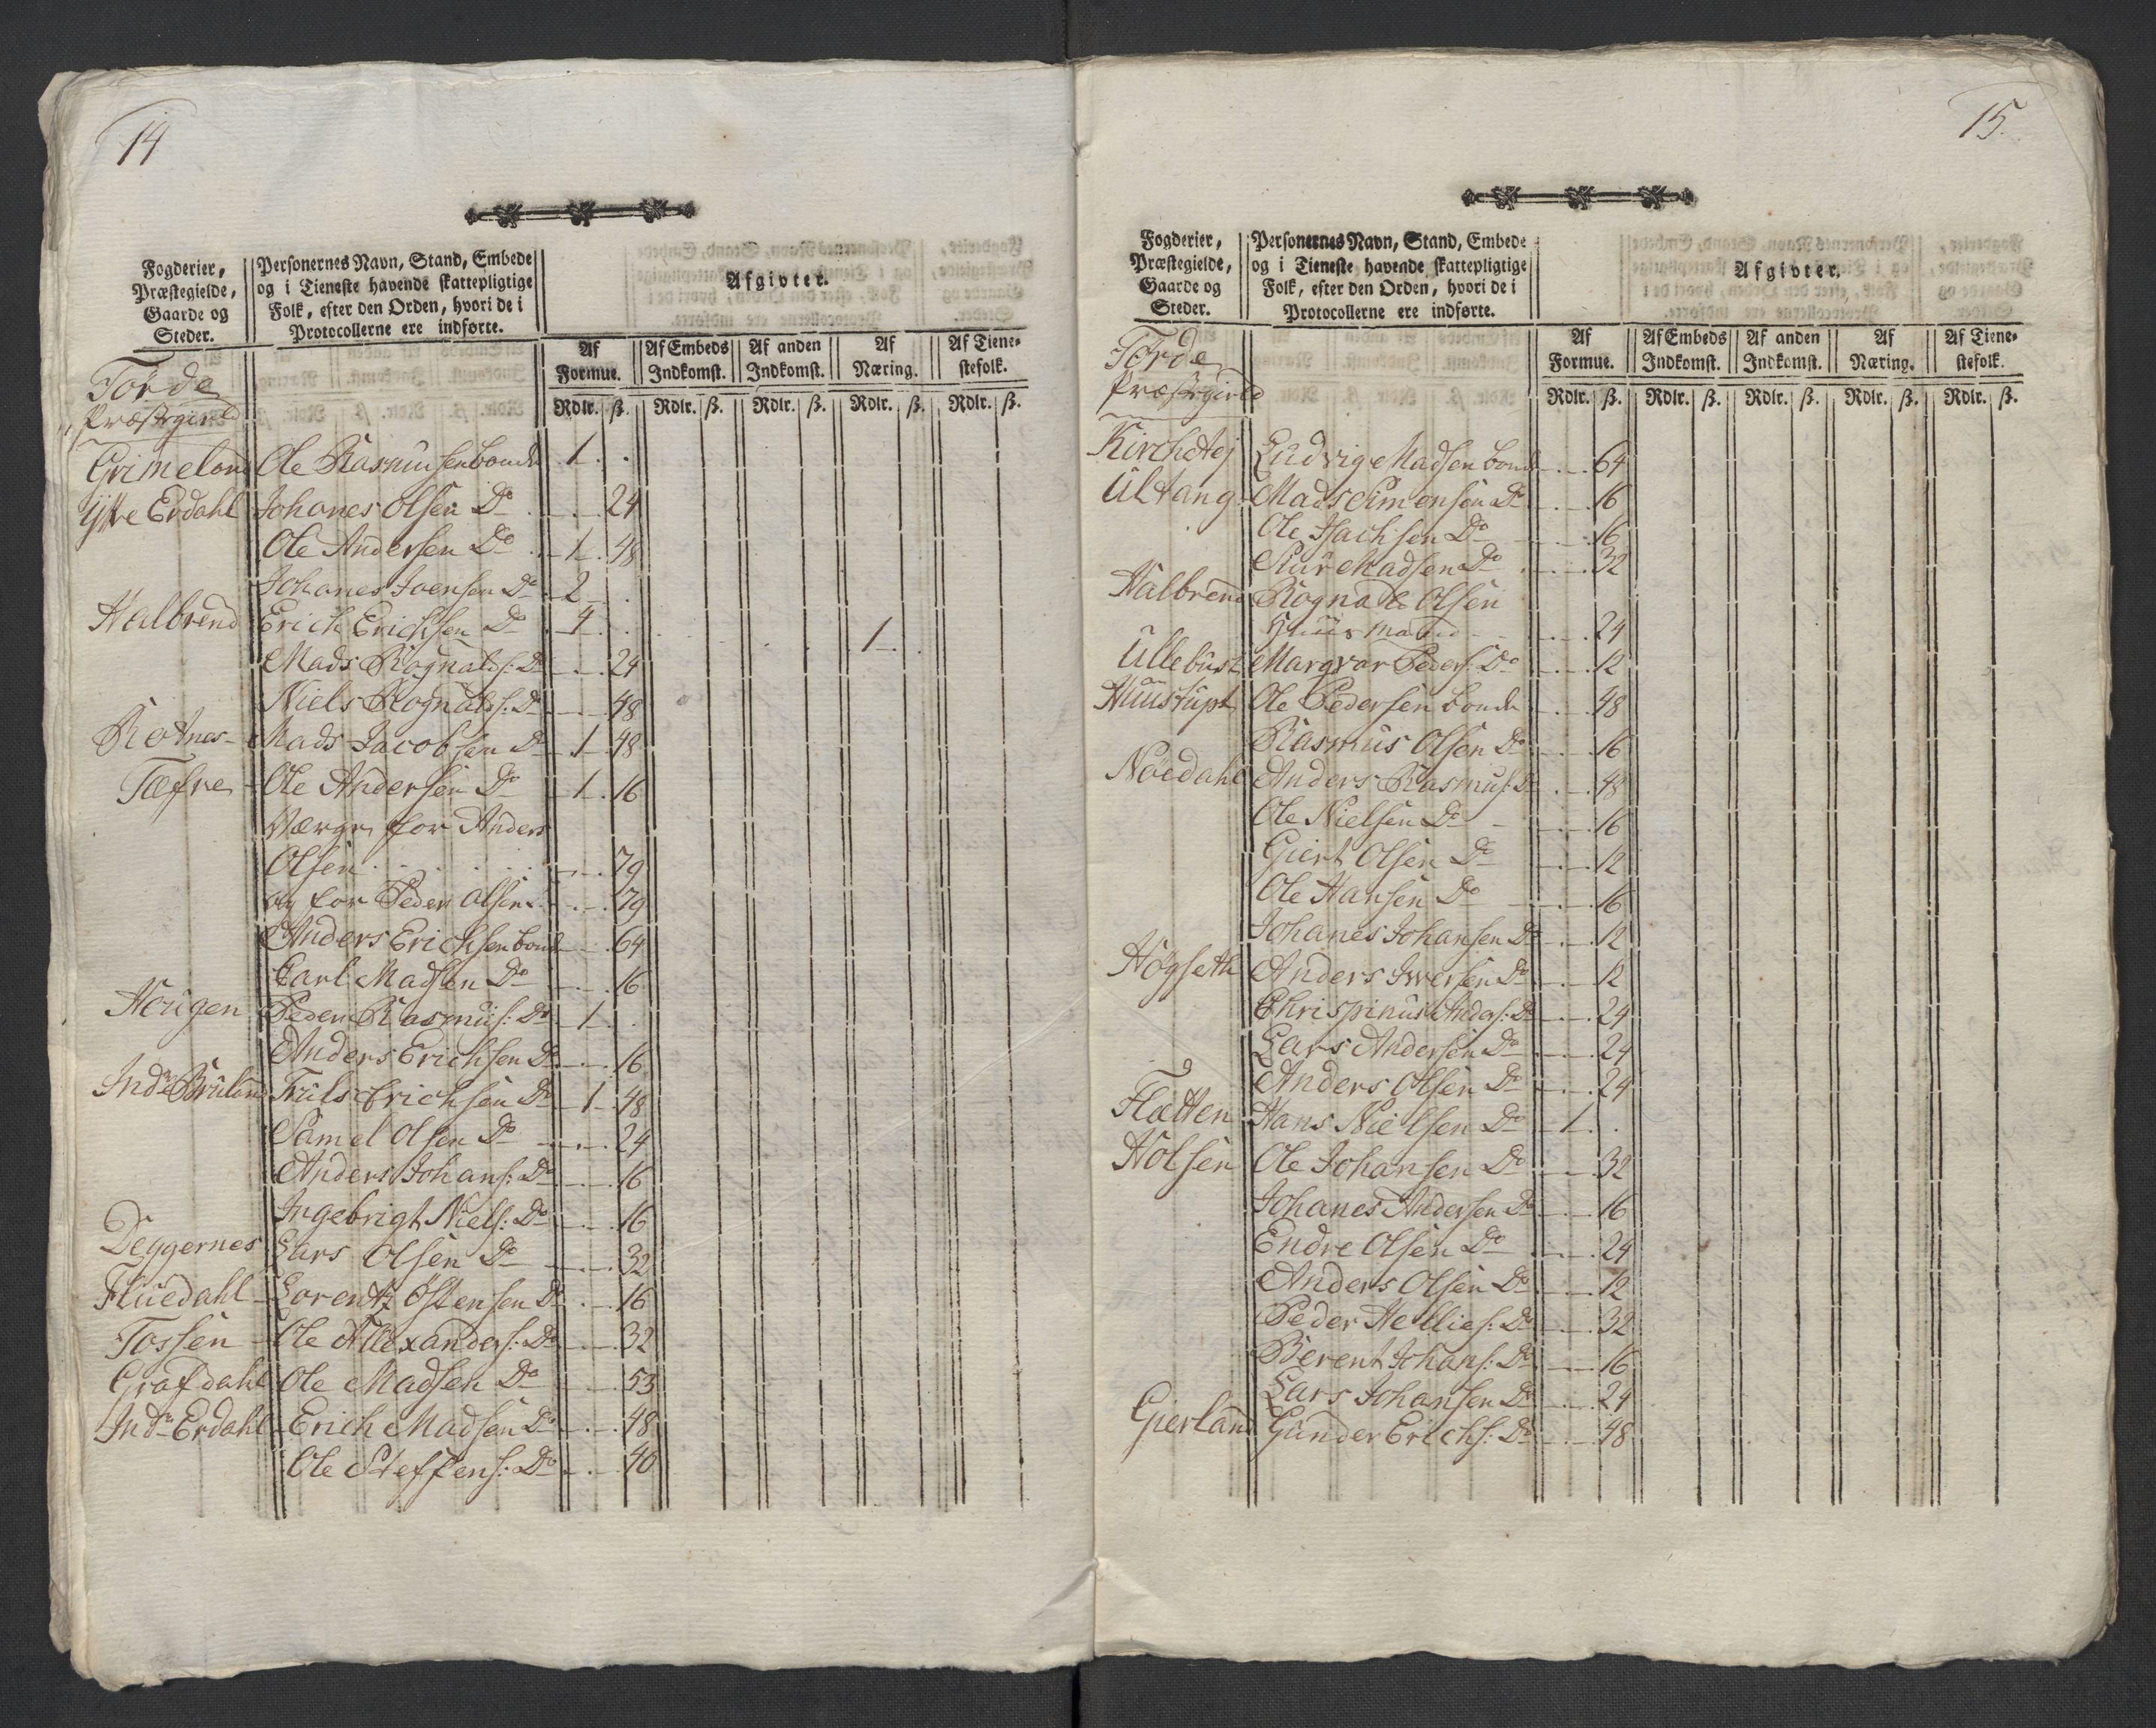 14
Fogderier,
Præstegielde,
Gaarde og
Steder.
Personernes Navn, Stand, Embede
og i Tieneste havende skattepligtige
Folk, efter den Orden, hvori de i
Protocollerne ere indførte.
Afgivter.
Af Formue. Af Embeds Indkomst. Af anden Indkomst. Af Næring. Af Tiene-stefolk.
Rdlr. ß. Rdlr. ß. Rdlr. ß. Rdlr. ß. Rdlr. ß.
Förde
Præstegield
Grimeland Ole Rasmusen bonde 1 .
Ytre Erdahl Johanes Olsen Do 24
Ole Andersen Do 1 48
Johanes Joensen Do 2 .
Halbrend Erich Erichsen Do 4 . 1 .
Mads Rognalds: Do 24
Niels Rognalds: Do 48
Rotnes Mads Jacobsen Do 1 48
Tæfre Ole Andersen Do 1 16
Værge for Anders
Olsen 79
og for Peder Olsen 79
Anders Erichsen bonde 64
Carl Madsen Do 16
Hougen Peder Rasmus: Do 1 .
Anders Erichsen Do 16
Indr Bruland Truls Erichsen Do 1 48
Samel Olsen Do 24
Anders Johans: Do 16
Ingebrigt Niels: Do 16
Deggernes Lars Olsen Do 32
Fluedahl Lorentz Östensen Do 16
Tossen Ole Allexanders: Do 32
Grafdahl Ole Madsen Do 53
Indr Erdahl Erich Madsen Do 48
Ole Steffens: Do 40
15.
Fogderier,
Præstegielde,
Gaarde og
Steder.
Personernes Navn, Stand, Embede
og i Tieneste havende skattepligtige
Folk, efter den Orden, hvori de i
Protocollerne ere indførte.
Afgivter.
Af Formue. Af Embeds Indkomst. Af anden Indkomst. Af Næring. Af Tiene-stefolk.
Rdlr. ß. Rdlr. ß. Rdlr. ß. Rdlr. ß. Rdlr. ß.
Förde
Præstegield
Ludvig Madsen bonde 64
Ultang Mads Simonsen Do 16
Ole Isachsen Do 16
Siur Madsen Do 32
Halbrend Rognald Olsen
Huusmand 24
Ullebust Margvar Peders: Do 12
Ole Pedersen bonde 48
Rasmus Olsen Do 16
Nöedahl Anders Rasmus: Do 48
Ole Nielsen Do 16
Giert Olsen Do 12
Ole Hansen Do 16
Johanes Johansen Do 12
Högseth Anders Iwersen Do 12
Chrispinus Anders: Do 24
Lars Andersen Do 24
Anders Olsen Do 24
Flatten Hans Nielsen Do 1 .
Holsen Ole Johansen Do 32
Johanes Andersen Do 16
Endre Olsen Do 24
Anders Olsen Do 12
Peder Hellies: Do 32
Berent Johans: Do 16
Lars Johansen Do 24
Gierland Gunder Erichs: Do 48